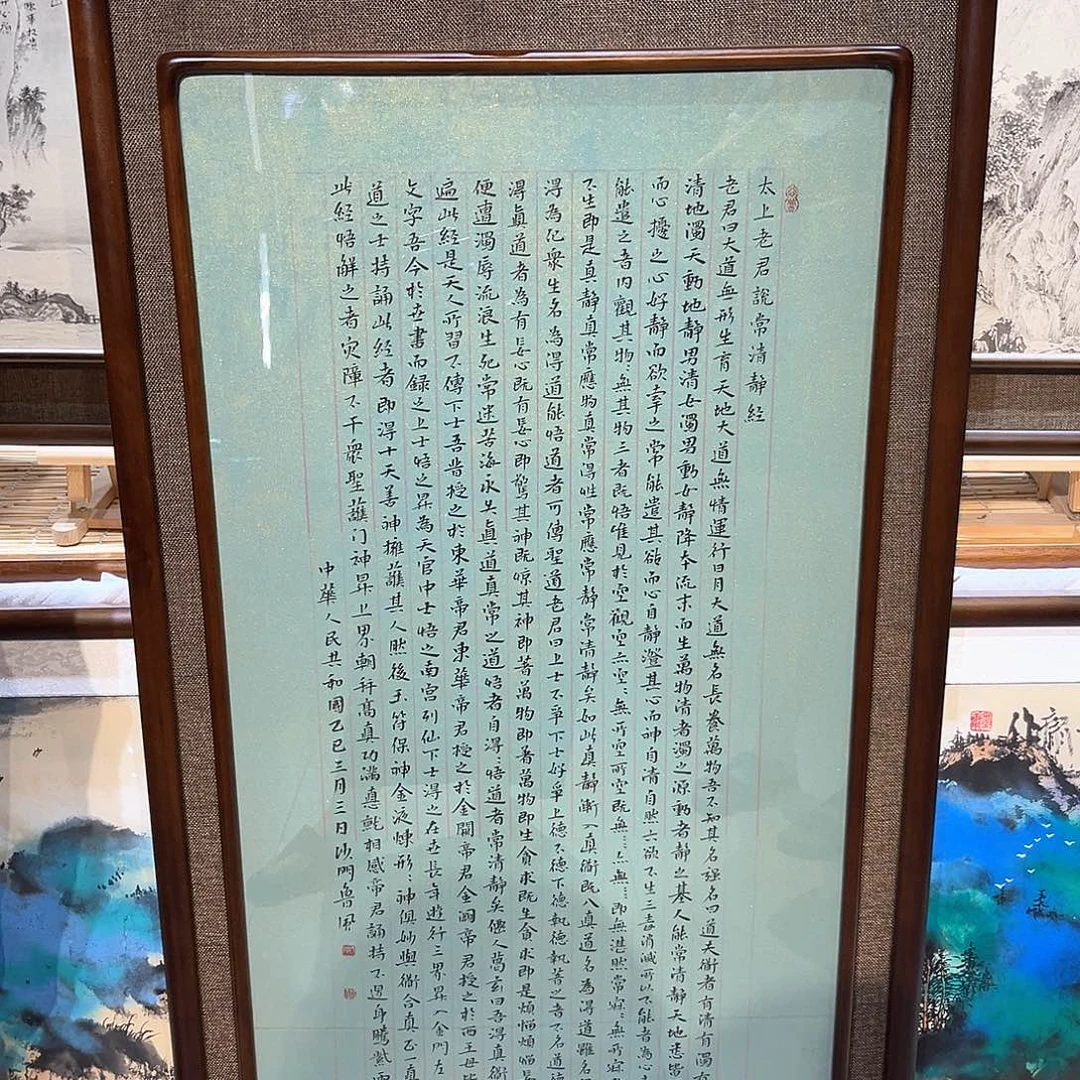 太上老君說常清靜經
老君曰大道無形生育天地大道無情運行日月大道無名長養萬物吾不知其名強名曰道夫衜者有清有濁有
清地濁天動地靜男清女濁男動女靜降本流末而生萬物清者濁之源動者靜之基人能常清靜天地悉皆
而心擾之心好靜而欲牽之常能遣其欲而心自靜澄其心而神自清自然六欲不生三毒消滅所以不能者為心
能遣之者內觀其物:無其物三者既悟唯見於空觀空亦空:無所空所空既無:亦無:即無湛然常寂:無所寂
不生即是真靜真常應物真常得性常應常靜常清靜矣如此真靜漸入真衜既入真道名為得道雖名
得為化眾生名為得道能悟道者可傳聖道老君曰上士不爭下士好爭上德不德下德執德執著之者不名道德
得真道者為有妄心既有妄心即驚其神既驚其神即著萬物即著萬物即生貪求既生貪求即是煩惱煩惱妄
便遭濁辱流浪生死常迷苦海永失真道真常之道悟者自得:悟道者常清靜矣仙人葛玄曰吾得真衜
遍此經是天人所習不傳下士吾昔授之於東華帝君東華帝君授之於金闕帝君金闕帝君授之於西王母皆
文字吾今於世書而錄之上士悟之昇為天官中士悟之南宮列仙下士得之在世長年遊行三界昇入金門左
道之士持誦此經者即得十天善神擁護其人然後玉符保神金液煉形:神俱妙與衜合真正一真
此經悟解之者灾障不干眾聖護門神昇上界朝拜高真功滿德就相感帝君誦持不退身騰紫雲
中華人民共和國乙巳三月三日沙門魯風